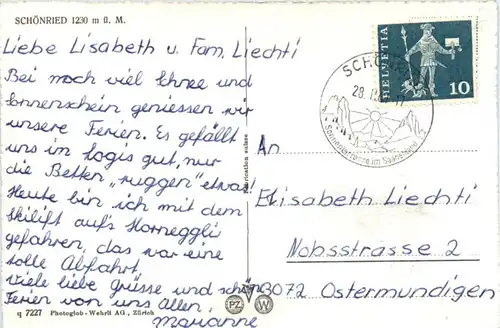 SCHÖNRIED 1230 m ü. M.
Liebe Lisabeth u. Fam. Liechti
Bei noch viel Schnee und
Sonnenschein geniessen wir
unsere Ferien. Es gefällt
uns im Logis gut, nur
die Betten "ruggen" etwas!
Heute bin ich mit dem
Skilift auf's Horneggli
gefahren, das war eine
tolle Abfahrt.
Viele liebe Grüsse und schöne
Ferien von uns Allen,
Marianne
q 7227 Photoglob-Wehrli AG., Zürich
Fabrication suisse
PZ W
HELVETIA
10
28.
Sonnenterrasse im Saanenland
An
Elisabeth Liechti
Nobsstrasse 2
3072 Ostermundigen